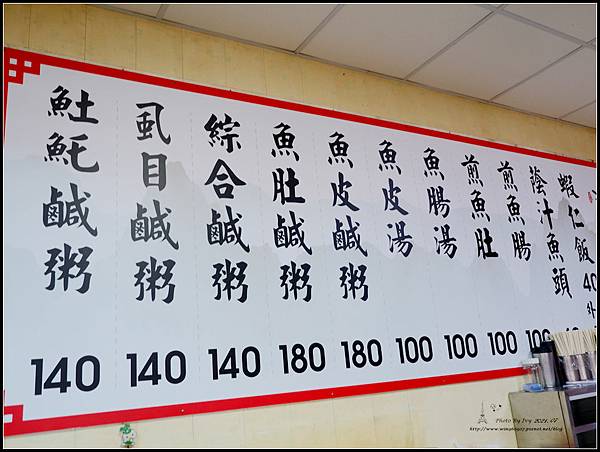 魚土魠鹹粥 140
虱目鹹粥 140
綜合鹹粥 140
魚肚鹹粥 180
魚皮鹹粥 180
魚皮湯 100
魚腸湯 100
煎魚肚 100
煎魚腸 100
蔭汁魚頭
蝦仁飯 40
外
Photo By Ivy 2021.07